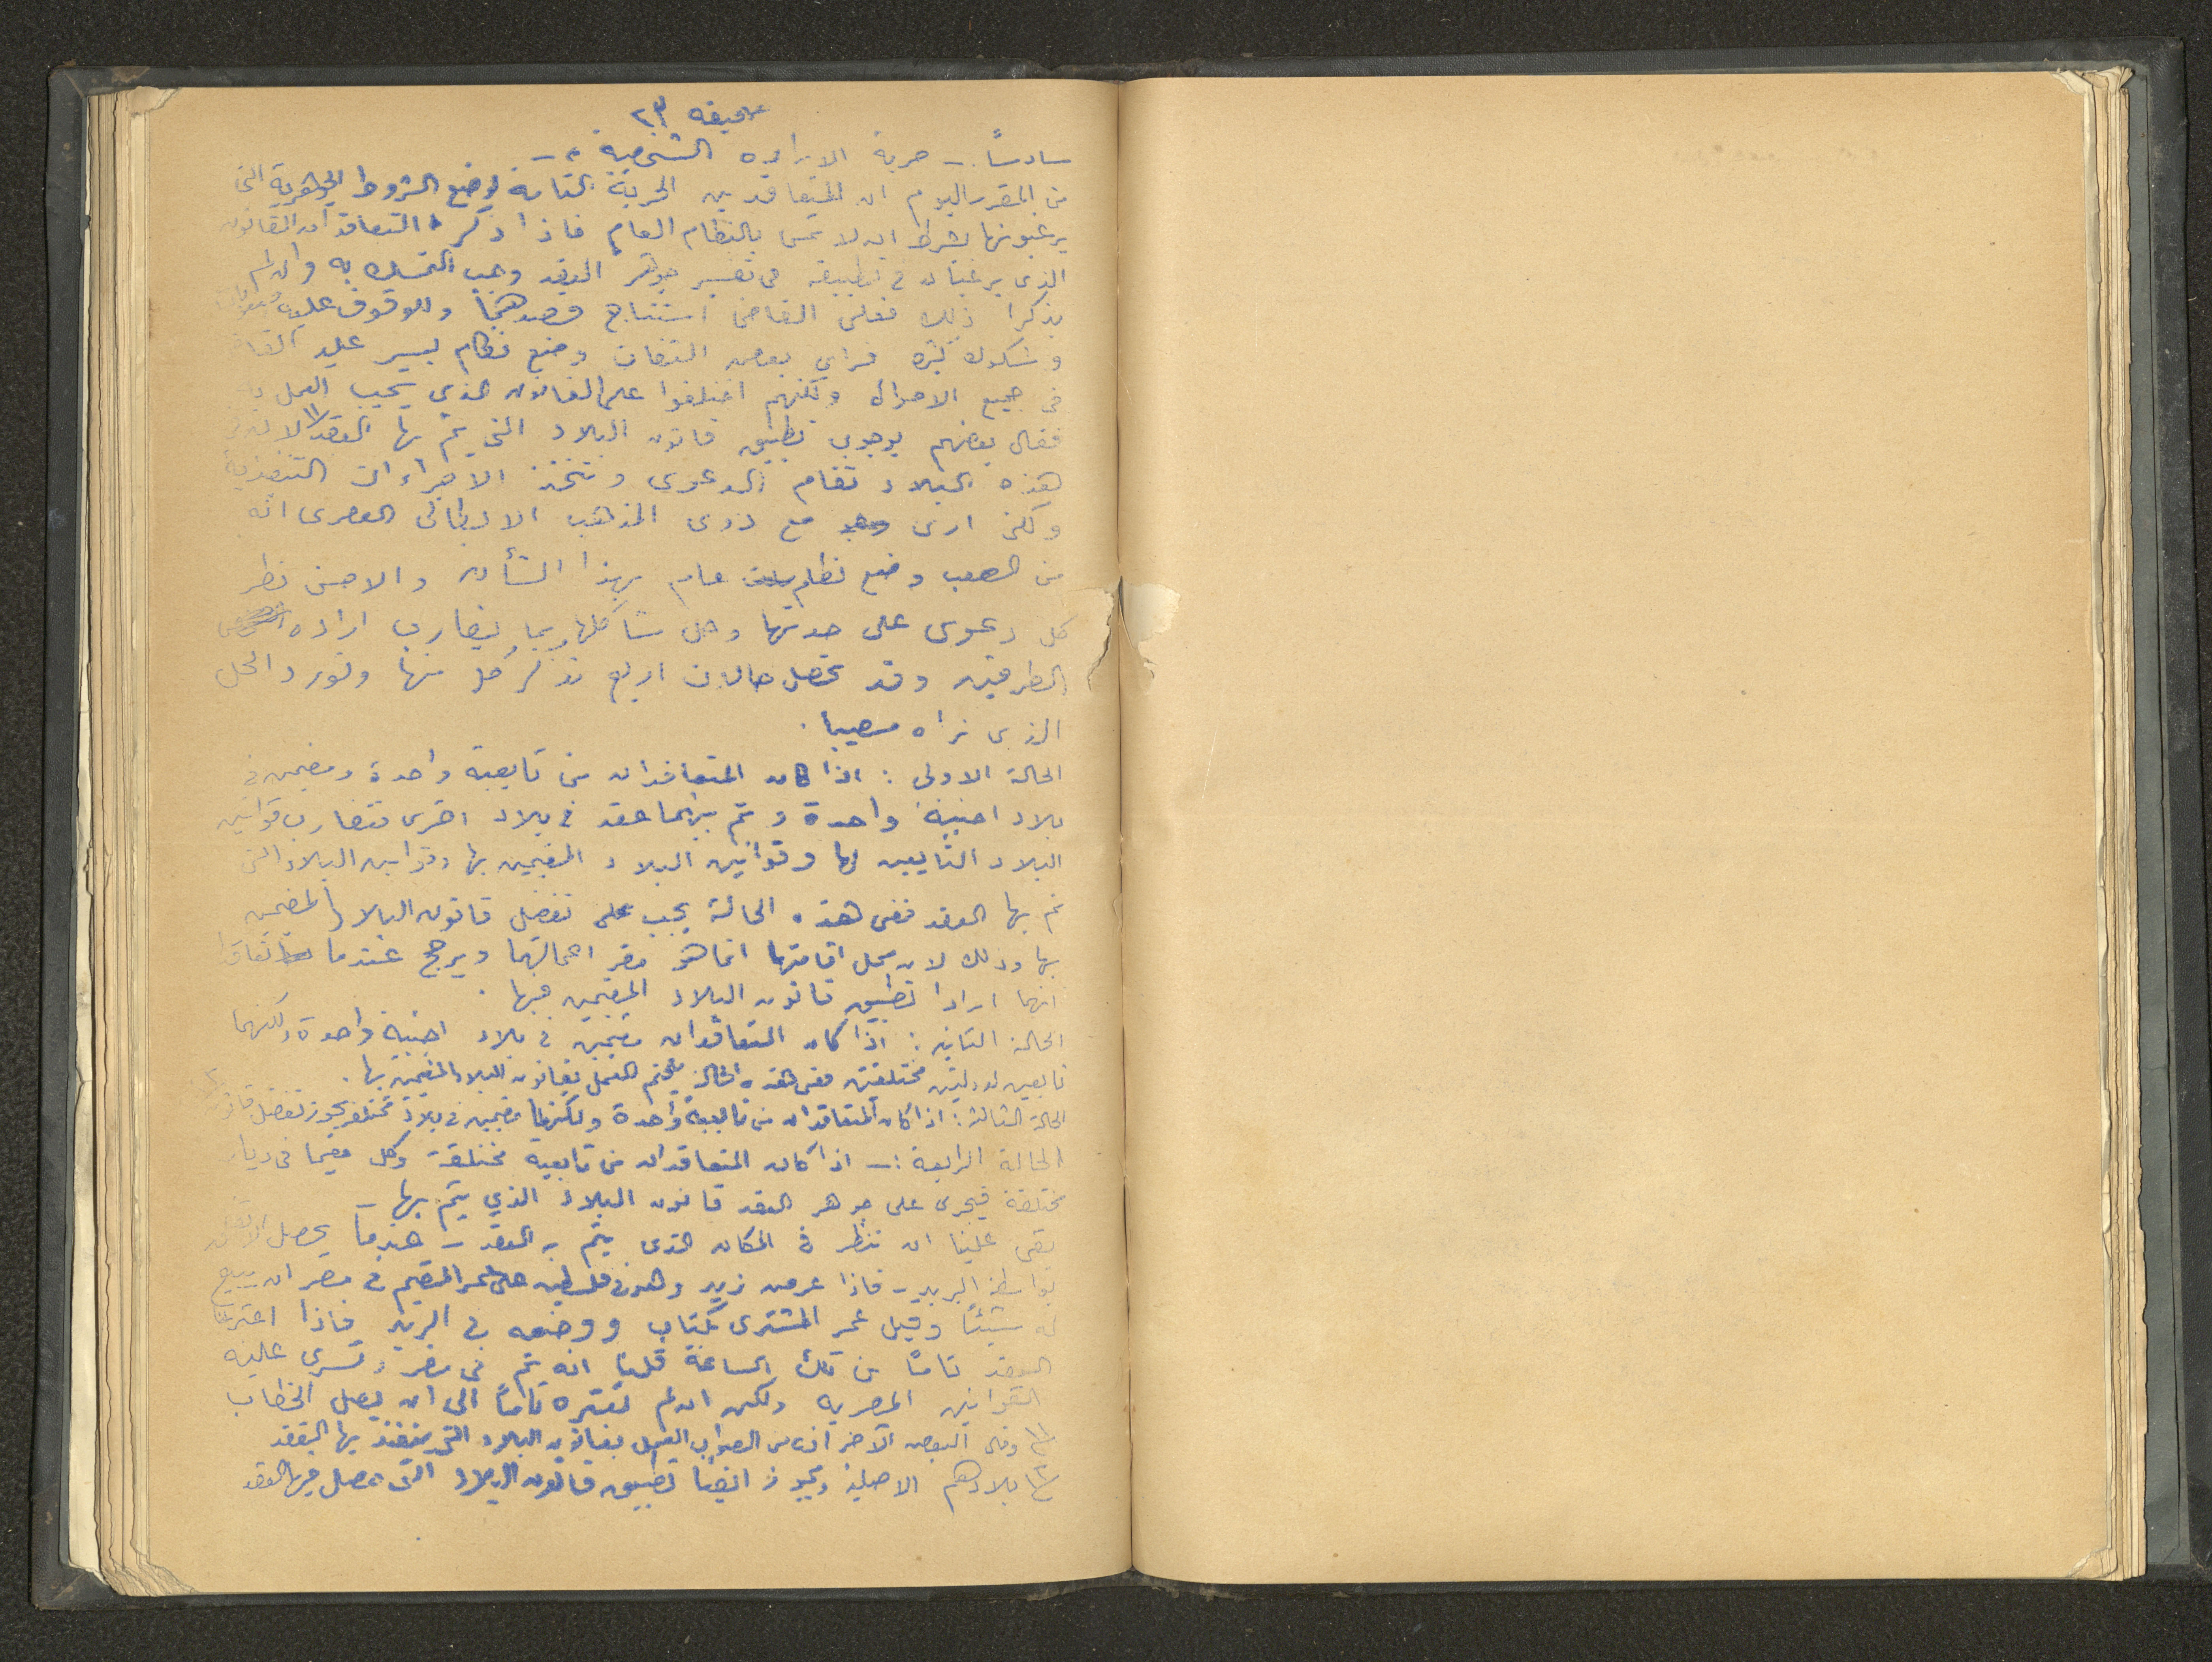 صحيفه ٢٣
سادساً :– حرية الاراده الشخصية :–
من المقرر اليوم ان للمتعاقدين الحرية التامة لوضع الشروط الجوهرية التي
يرغبونها بشرط ان لا تمس بالنظام العام فاذا ذكر المتعاقدان القانون
الذى يرغبان في تطبيقه في تفسير جوهر العقد وجب التمسك به وان لم
يذكرا ذلك فعلى القاضي استنتاج قصدهما وللوقوف عليه صعوبات
وشكوك كثيره فراى بعض الثقات وضع نظام يسير عليه القاضي
في جميع الاحوال ولكنهم اختلفوا على القانون الذي يجب العمل به
فقال بعضهم بوجوب تطبيق قانون البلاد التي يتم بها العقد (١) لانه في
هذه البلاد تقام الدعوى وتتخذ الاجراءات التنفيذية
ولكني ارى مع ذوى المذهب الايطالي العصرى انه
من الصعب وضع نظام عام بهذا الشأن والاحسن نظر
كل دعوى على حدتها وحل مشاكلها بما يقارب اراده
الطرفين وقد تحصل حالات اربع نذكر كل منها ونورد الحل
الذى نراه مصيبا .
الحالة الاولى : اذا كان المتعاقدان من تابعية واحدة ومقيمين في
بلاد اجنبية واحدة وتم بينهما عقد في بلاد اخرى فتضارب قوانين
البلاد التابعين لها وقوانين البلاد المقيمين بها وقوانين البلاد التي
تم بها العقد ففي هذه الحالة يجب تفضيل قانون البلاد المقيمين
بها وذلك لان محل اقامتها انما هو مقر اعمالهما ويرجح عندما تعاقدا
انهما ارادا تطبيق قانون البلاد المقيمين فيها .
الحالة الثانية : اذا كان المتعاقدان مقيمين في بلاد اجنبية واحدة ولكنهما
تابعين لدولتين مختلفتين ففي هذه الحالة يتحتم العمل بقانون البلاد المقيمين بها .
الحالة الثالثة : اذا كان المتعاقدان من تابعية واحدة ولكنهما مقيمين في بلاد مختلفة يجوز تفضيل قانون (٢)
الحالة الرابعة :– اذا كان المتعاقدان من تابعية مختلفة وكل مقيما في ديار
مختلفة فيجرى على جوهر العقد قانون البلاد الذي يتم بها –
بقي علينا ان ننظر في المكان الذى يتم به العقد – عندما يحصل الاتفاق
بواسطة البريد – فاذا عرض زيد وهو في فلسطين على عمر المقيم في مصر ان يبيع
له شيئاً وقبل عمر المشترى بكتاب ووضعه في البريد فاذا اعتبرنا
العقد تاماً من تلك الساعة قلنا انه تم في مصر وتسرى عليه
القوانين المصريه ولكن ان لم نعتبره تاماً الى ان يصل الخطاب
(١) وقال البعض الآخر ان من الصواب العمل بقانون البلاد التي ينفذ بها العقد
(٢) بلادهم الاصلية ويجوز ايضاً تطبيق قانون البلاد التي حصل فيها العقد